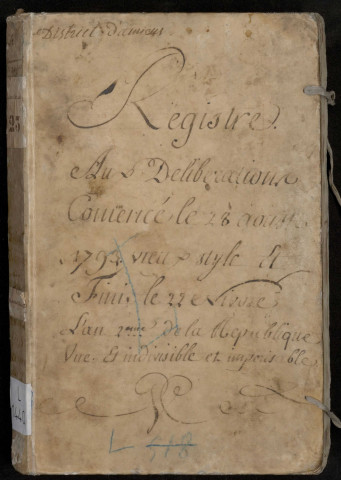 District d'amiens
Registre
Aux Deliberations
Comencé le 28 aoust
1793 vieux style et
Finis le 22e
L'an 2me de la Republique
Une & indivisible et imperissable
L 518
23
L